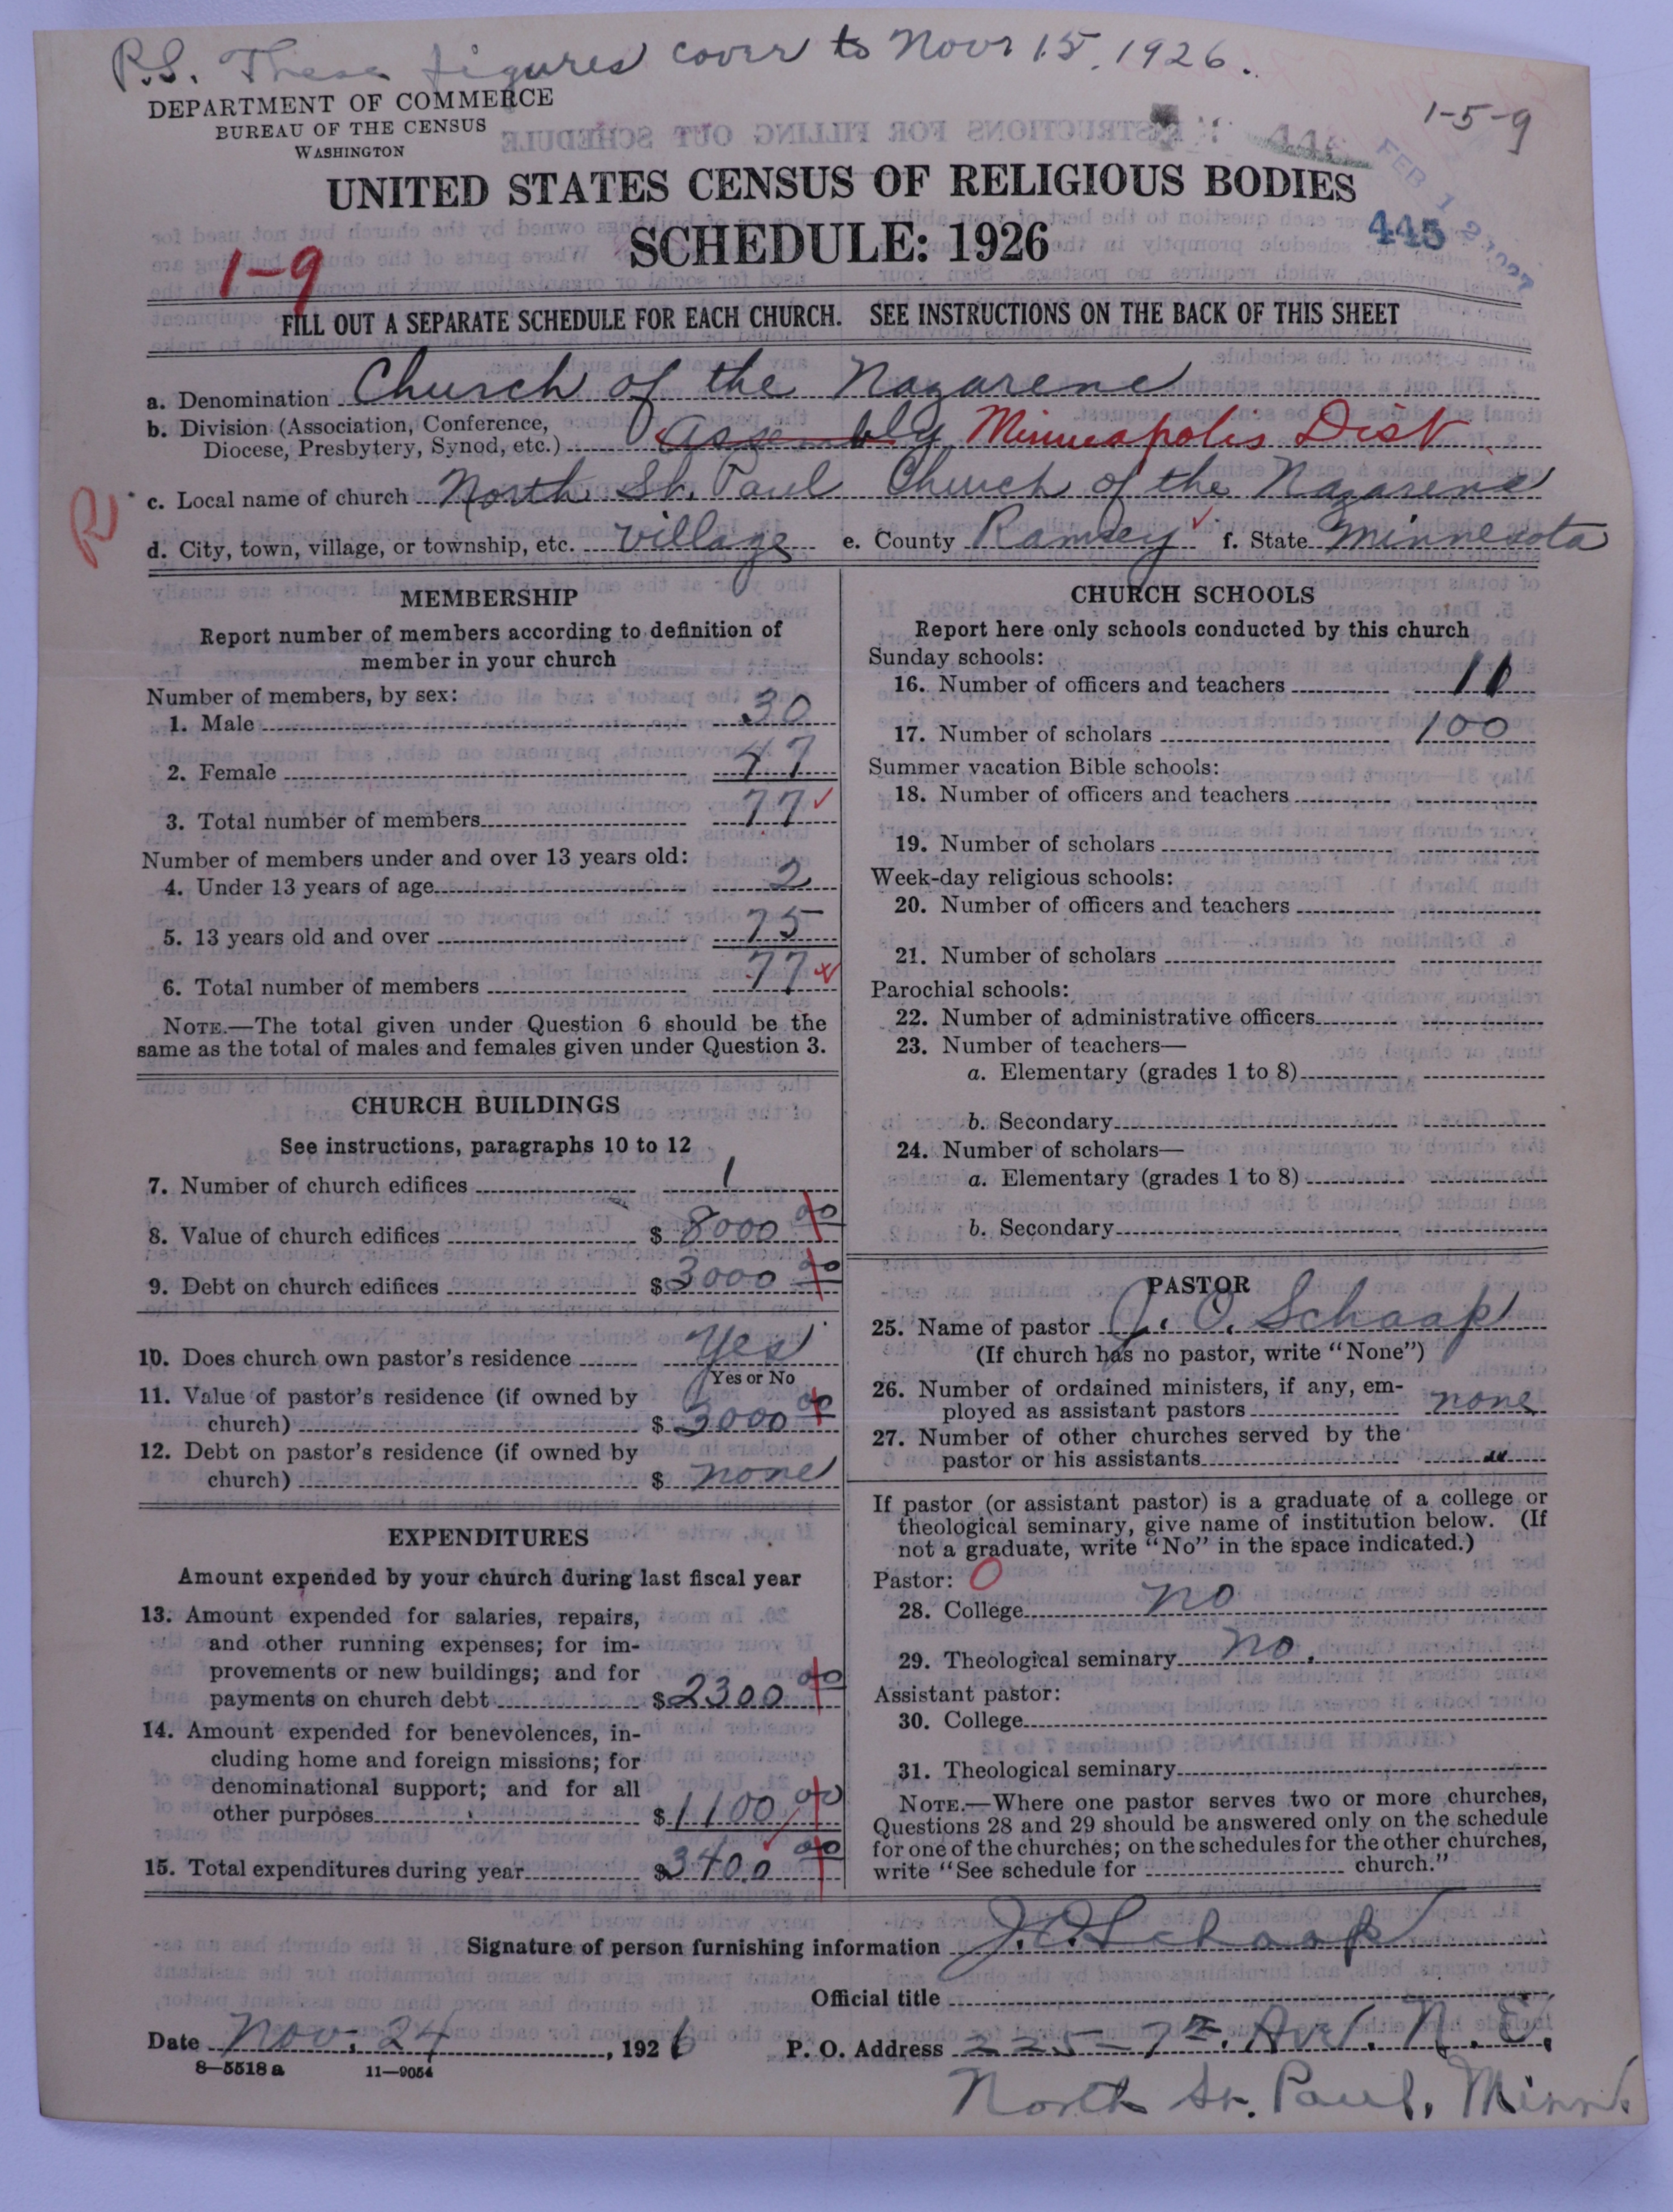 P.S. These figures cover to Novr 15, 1926.
DEPARTMENT OF COMMERCE
BUREAU OF THE CENSUS
WASHINGTON
1-5-9
FEB 12 1927
UNITED STATES CENSUS OF RELIGIOUS BODIES
SCHEDULE: 1926
445
1-9
FILL OUT A SEPARATE SCHEDULE FOR EACH CHURCH. SEE INSTRUCTIONS ON THE BACK OF THIS SHEET
a. Denomination Church of the Nazarene
b. Division (Association, Conference,
Diocese, Presbytery, Synod, etc.) Assembly Minneapolis Dist
R
c. Local name of church North St. Paul Church of the Nazarene
d. City, town, village, or township, etc. village e. County Ramsey f. State Minnesota
MEMBERSHIP
Report number of members according to definition of
member in your church
Number of members, by sex:
1. Male 30
2. Female 47
3. Total number of members 77
Number of members under and over 13 years old:
4. Under 13 years of age 2
5. 13 years old and over 75
6. Total number of members 77
NOTE.—The total given under Question 6 should be the
same as the total of males and females given under Question 3.
CHURCH BUILDINGS
See instructions, paragraphs 10 to 12
7. Number of church edifices 1
8. Value of church edifices $ 8000 00
9. Debt on church edifices $ 3000 00
10. Does church own pastor's residence Yes
Yes or No
11. Value of pastor's residence (if owned by
church) $ 3000 00
12. Debt on pastor's residence (if owned by
church) $ none
EXPENDITURES
Amount expended by your church during last fiscal year
13. Amount expended for salaries, repairs,
and other running expenses; for im-
provements or new buildings; and for
payments on church debt $ 2300 00
14. Amount expended for benevolences, in-
cluding home and foreign missions; for
denominational support; and for all
other purposes $ 1100 00
15. Total expenditures during year $ 3400 00
CHURCH SCHOOLS
Report here only schools conducted by this church
Sunday schools:
16. Number of officers and teachers 11
17. Number of scholars 100
Summer vacation Bible schools:
18. Number of officers and teachers
19. Number of scholars
Week-day religious schools:
20. Number of officers and teachers
21. Number of scholars
Parochial schools:
22. Number of administrative officers
23. Number of teachers—
a. Elementary (grades 1 to 8)
b. Secondary
24. Number of scholars—
a. Elementary (grades 1 to 8)
b. Secondary
PASTOR
25. Name of pastor J. O. Schaap
(If church has no pastor, write "None")
26. Number of ordained ministers, if any, em-
ployed as assistant pastors none
27. Number of other churches served by the
pastor or his assistants "
If pastor (or assistant pastor) is a graduate of a college or
theological seminary, give name of institution below. (If
not a graduate, write "No" in the space indicated.)
Pastor: O
28. College no
29. Theological seminary no.
Assistant pastor:
30. College
31. Theological seminary
NOTE.—Where one pastor serves two or more churches,
Questions 28 and 29 should be answered only on the schedule
for one of the churches; on the schedules for the other churches,
write "See schedule for church."
Signature of person furnishing information J. O. Schaap
Official title
Date Nov. 24, 1926 P. O. Address 225-7th. Ave. N. E.
8—5518 a 11—9054
North St. Paul, Minn.